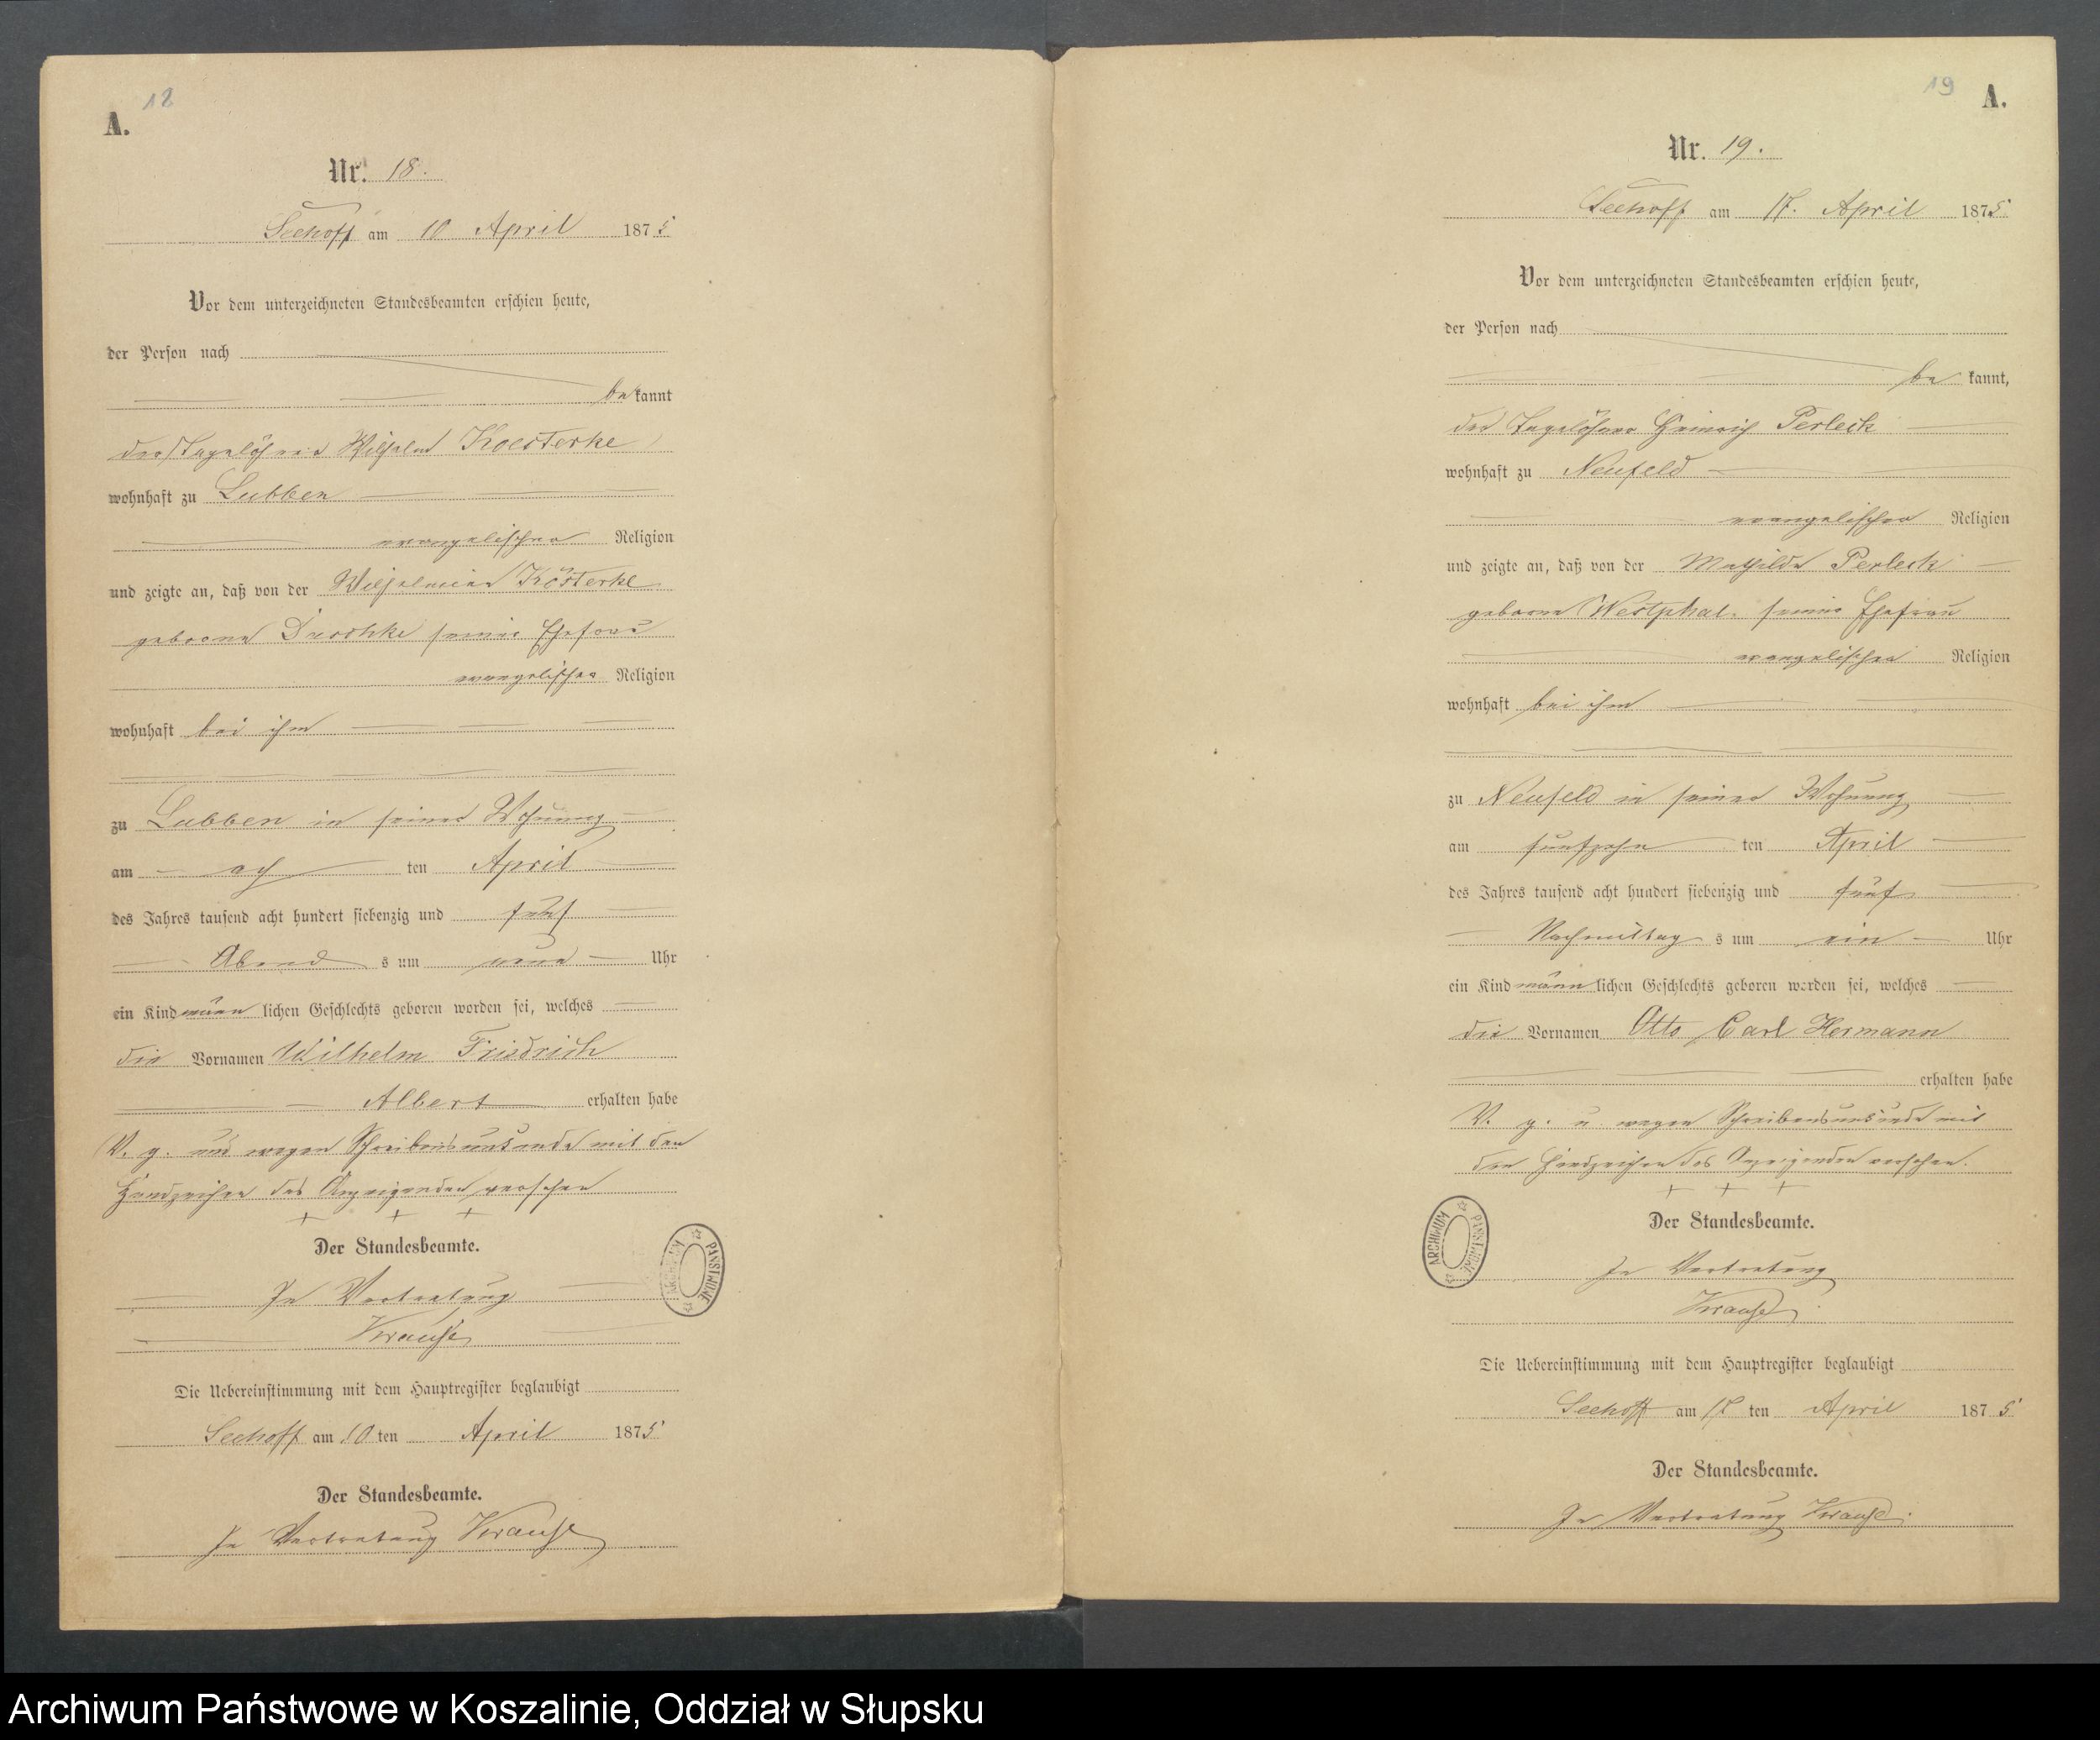 A. 18
Nr. 18.
Seehoff am 10 April 1875
Vor dem unterzeichneten Standesbeamten erschien heute,
der Person nach
be kannt
der Tagelöhner Wilhelm Koesterke
wohnhaft zu Lubben
evangelischer Religion
und zeigte an, daß von der Wilhelmine Kösterke
geborene Duschke seiner Ehefrau
evangelischer Religion
wohnhaft bei ihm
zu Lubben in seiner Wohnung
am ach ten April
des Jahres tausend acht hundert siebenzig und fünf
Abend s um neun Uhr
ein Kind männ lichen Geschlechts geboren worden sei, welches
die Vornamen Wilhelm Friedrich
Albert erhalten habe
V. g. und wegen Schreibensunkunde mit den
Handzeichen des Anzeigenden versehen
+ + +
Der Standesbeamte.
In Vertretung
Krause
Die Uebereinstimmung mit dem Hauptregister beglaubigt
Seehoff am 10 ten April 1875
Der Standesbeamte.
In Vertretung Krause
ARCHIWUM PAŃSTWOWE
19 A.
Nr. 19.
Seehoff am 17. April 1875
Vor dem unterzeichneten Standesbeamten erschien heute,
der Person nach
be kannt,
der Tagelöhner Heinrich Perleck
wohnhaft zu Neufeld
evangelischer Religion
und zeigte an, daß von der Mathilde Perleck
geborene Westphal. seiner Ehefrau
evangelischer Religion
wohnhaft bei ihm
zu Neufeld in seiner Wohnung
am fünfzehn ten April
des Jahres tausend acht hundert siebenzig und fünf
Nachmittag s um ein Uhr
ein Kind männ lichen Geschlechts geboren worden sei, welches
die Vornamen Otto Carl Hermann
erhalten habe
V. g. u. wegen Schreibensunkunde mit
den Handzeichen des Anzeigenden versehen.
+ + +
Der Standesbeamte.
In Vertretung
Krause
Die Uebereinstimmung mit dem Hauptregister beglaubigt
Seehoff am 17 ten April 1875
Der Standesbeamte.
In Vertretung Krause.
ARCHIWUM PAŃSTWOWE
Archiwum Państwowe w Koszalinie, Oddział w Słupsku